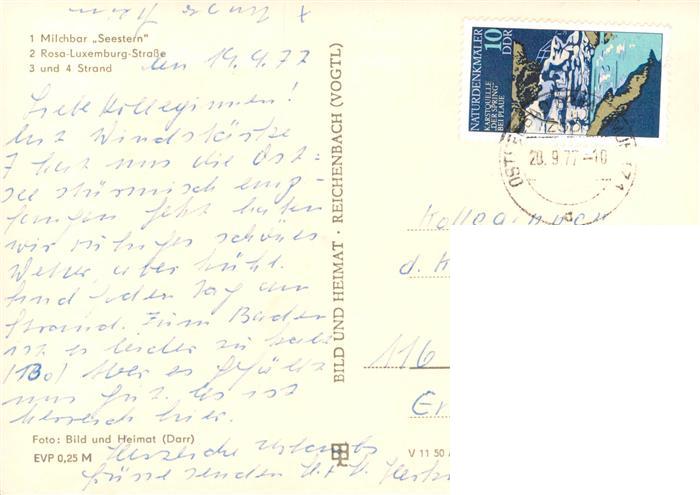 1 Milchbar „Seestern"
2 Rosa-Luxemburg-Straße
3 und 4 Strand
den 19.9.77
Liebe Kolleginnen!
Mit Windstärke
7 hat uns die Ost=
see stürmisch emp-
fangen jetzt haben
wir ruhiges schönes
Wetter, aber kühl.
Sind jeden Tag am
Strand. Zum Baden
ist es leider zu kalt
(13°) Aber es gefällt
uns gut. Es ist
herrlich hier.
Herzliche Urlaubs
grüße senden
Foto: Bild und Heimat (Darr)
EVP 0,25 M
V 11 50
BILD UND HEIMAT · REICHENBACH (VOGTL)
NATURDENKMÄLER
10
DDR
KARSTQUELLE
„DER SPRING"
BEI PLAUE
20.9.77-10
Kolleginnen
d.
116